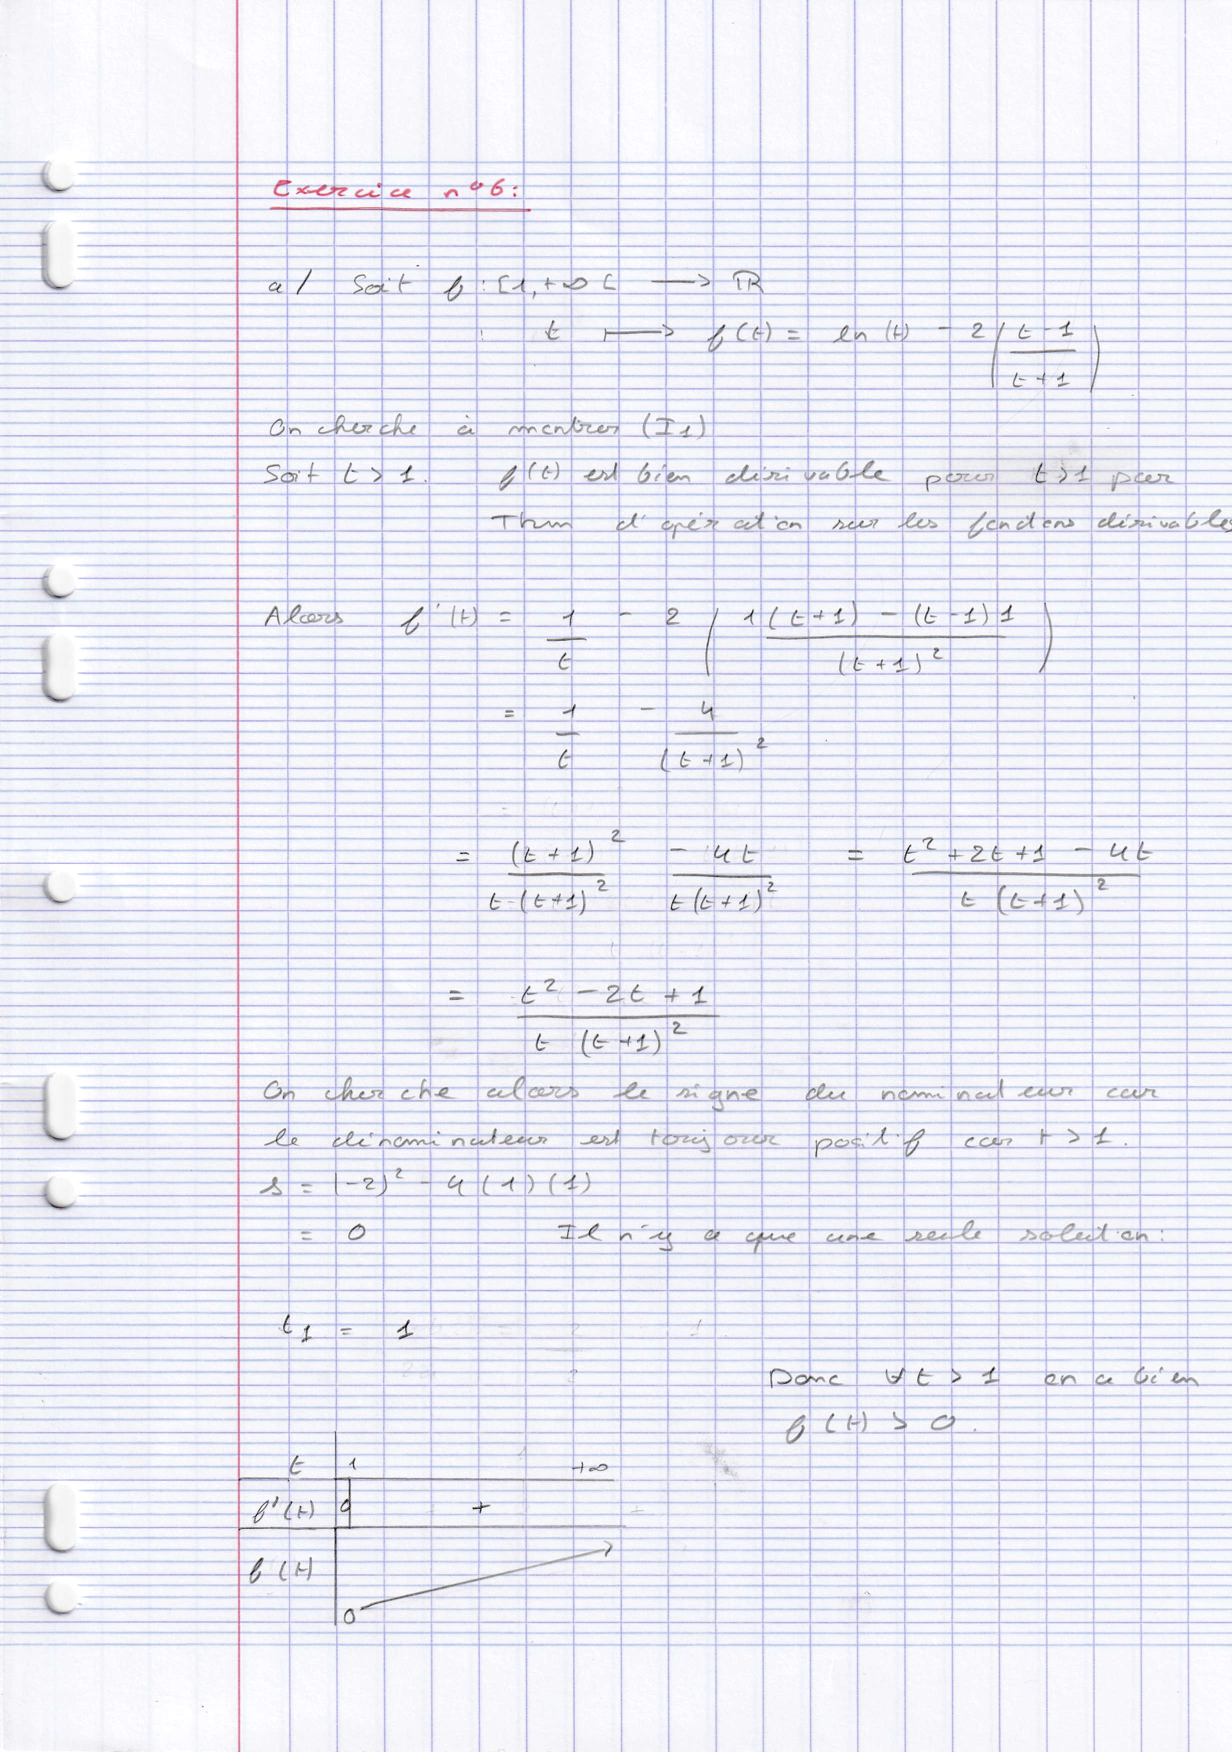 Exercice n°6:
a/ Soit f : [1, +∞ [ ⟶ ℝ
t ⟼ f(t) = ln(t) - 2 ( (t-1) / (t+1) )
On cherche à montrer (I1)
Soit t > 1. f(t) est bien dérivable pour t > 1 par
Thm d'opération sur les fonctions dérivables
Alors f'(t) = 1/t - 2 ( (1(t+1) - (t-1)1) / (t+1)² )
= 1/t - 4/(t+1)²
= (t+1)² / (t·(t+1)²) - 4t / (t(t+1)²) = (t² + 2t + 1 - 4t) / (t (t+1)²)
= (t² - 2t + 1) / (t (t+1)²)
On cherche alors le signe du nominateur car
le dénominateur est toujour positif car t > 1.
Δ = (-2)² - 4(1)(1)
= 0 Il n'y a que une seule solution:
t1 = 1
Donc ∀ t > 1 on a bien
f(t) > 0.
t 1 +∞
f'(t) 0 +
f(t) 0